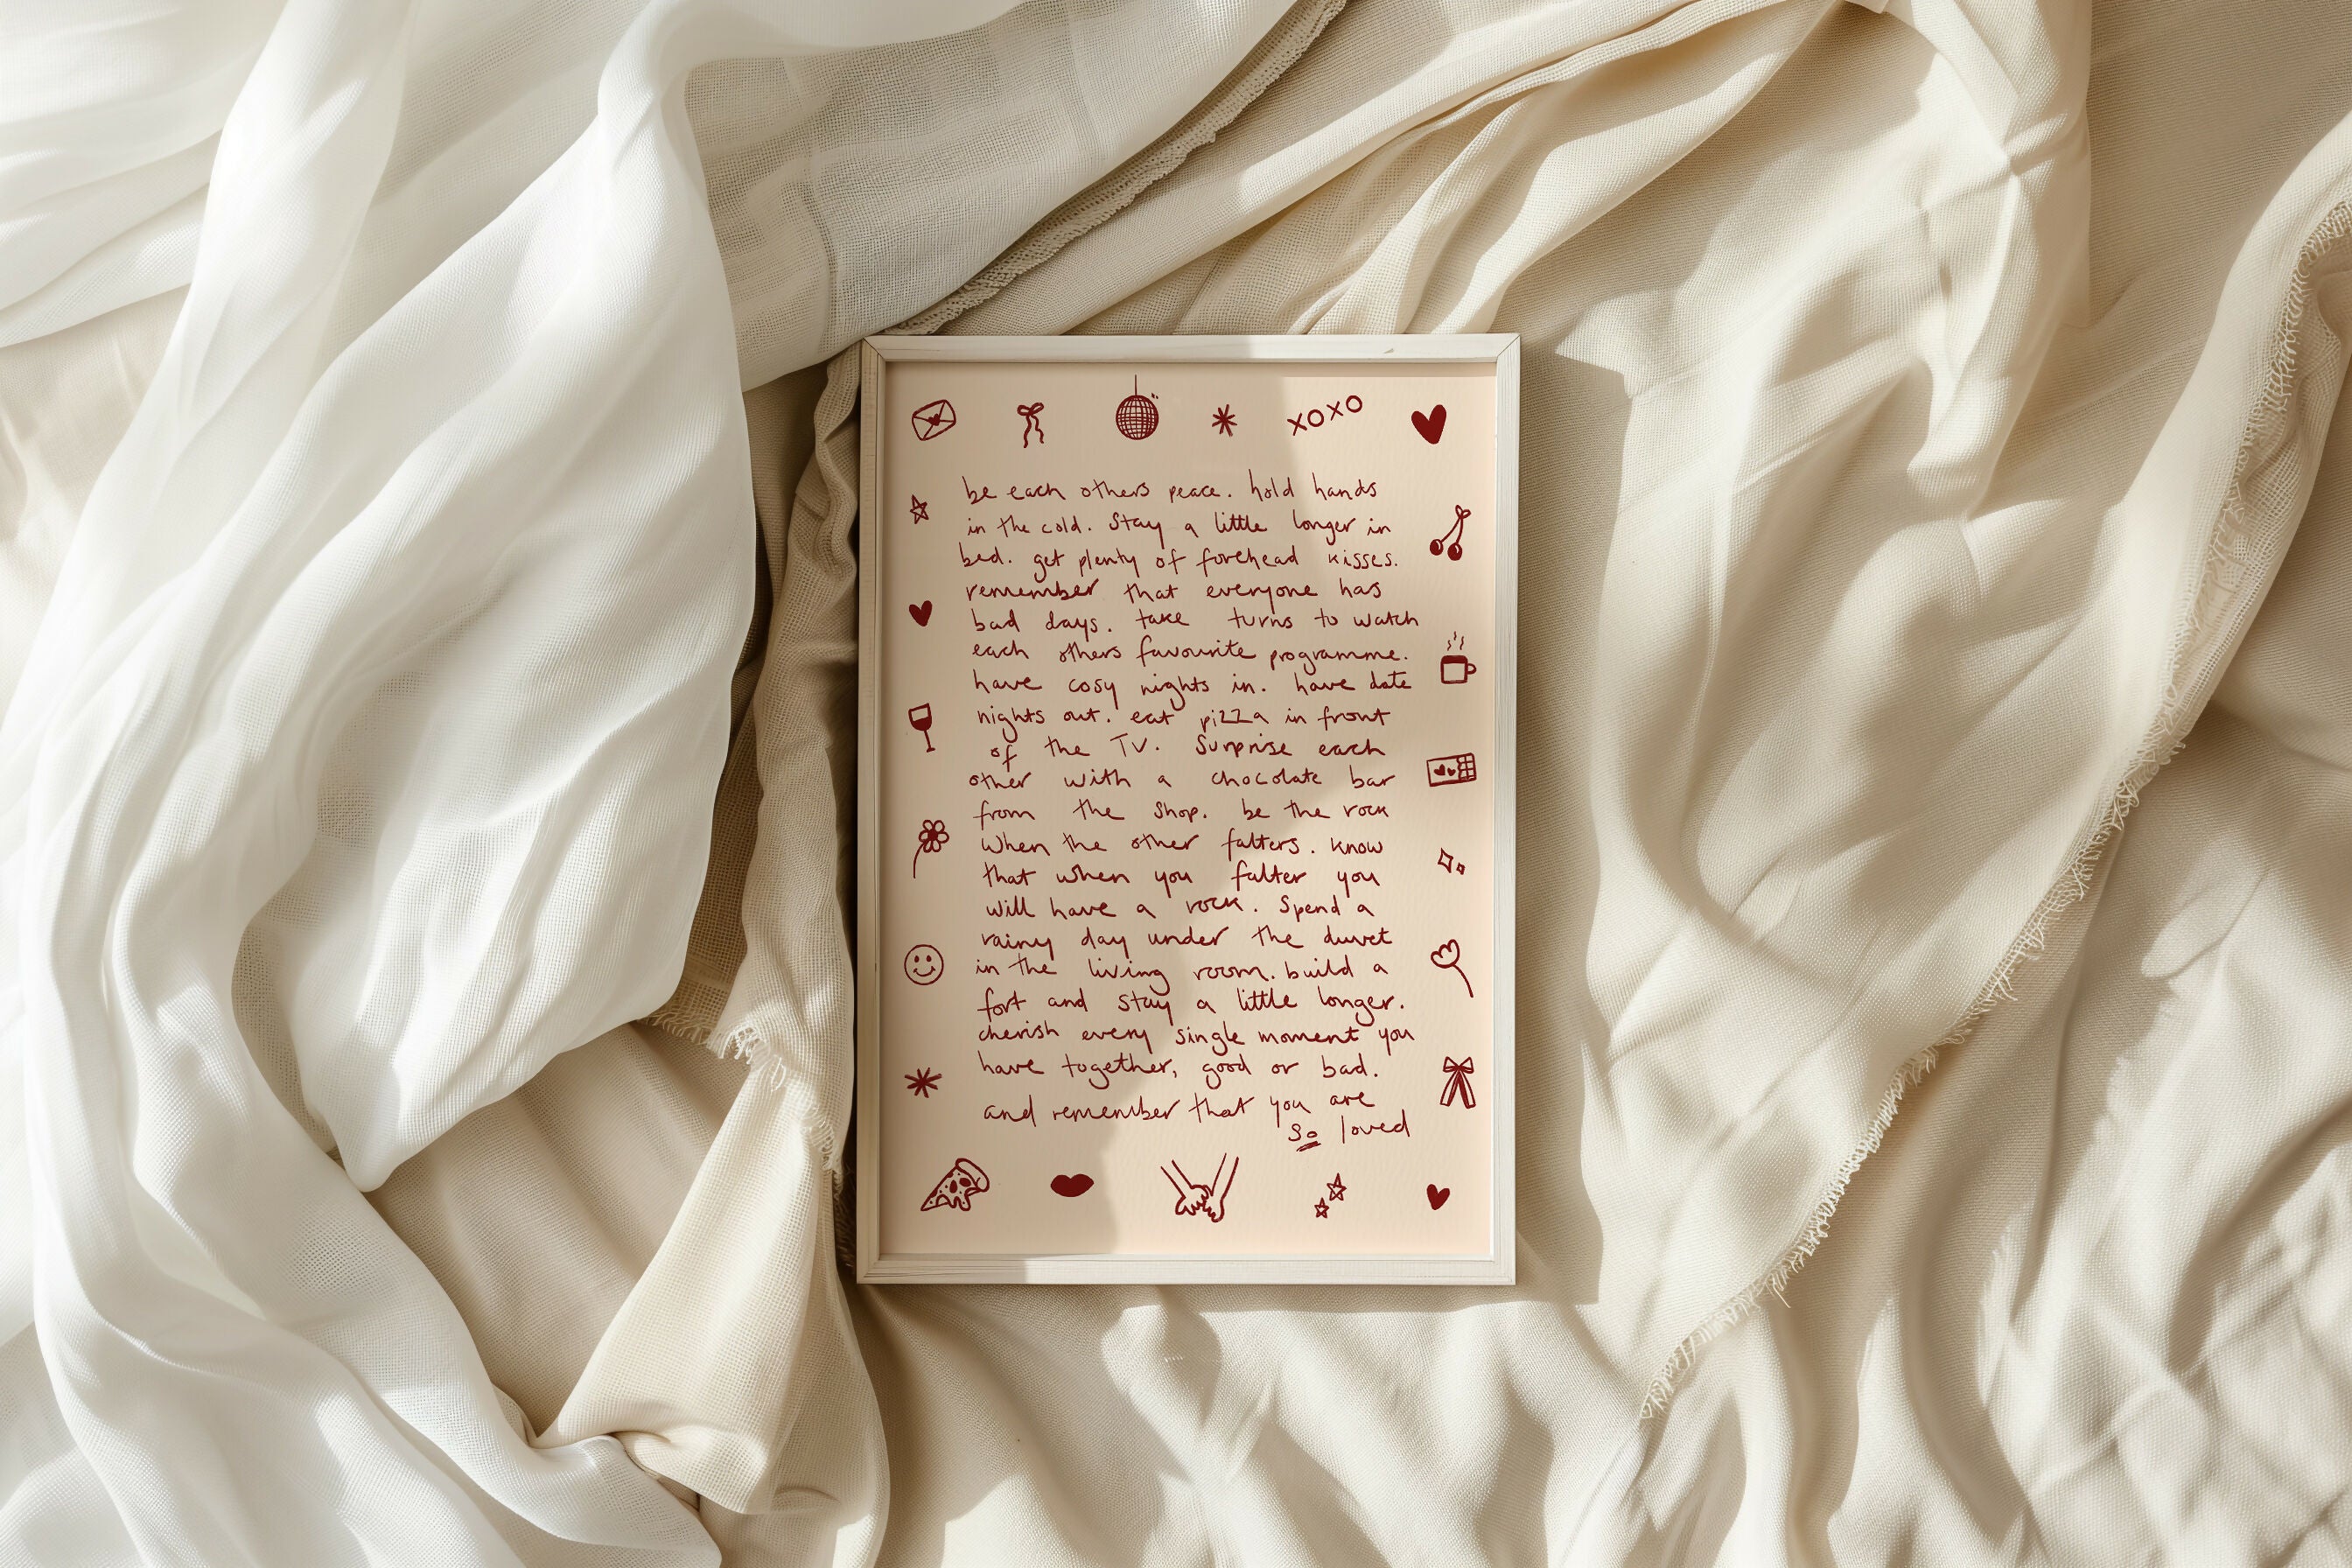 XOXO
be each others peace. hold hands
in the cold. Stay a little longer in
bed. get plenty of forehead kisses.
remember that everyone has
bad days. take turns to watch
each others favourite programme.
have cosy nights in. have date
nights out. eat pizza in front
of the TV. Surprise each
other with a chocolate bar
from the shop. be the rock
when the other falters. know
that when you falter you
will have a rock. Spend a
rainy day under the duvet
in the living room. build a
fort and stay a little longer.
cherish every single moment you
have together, good or bad.
and remember that you are
so loved